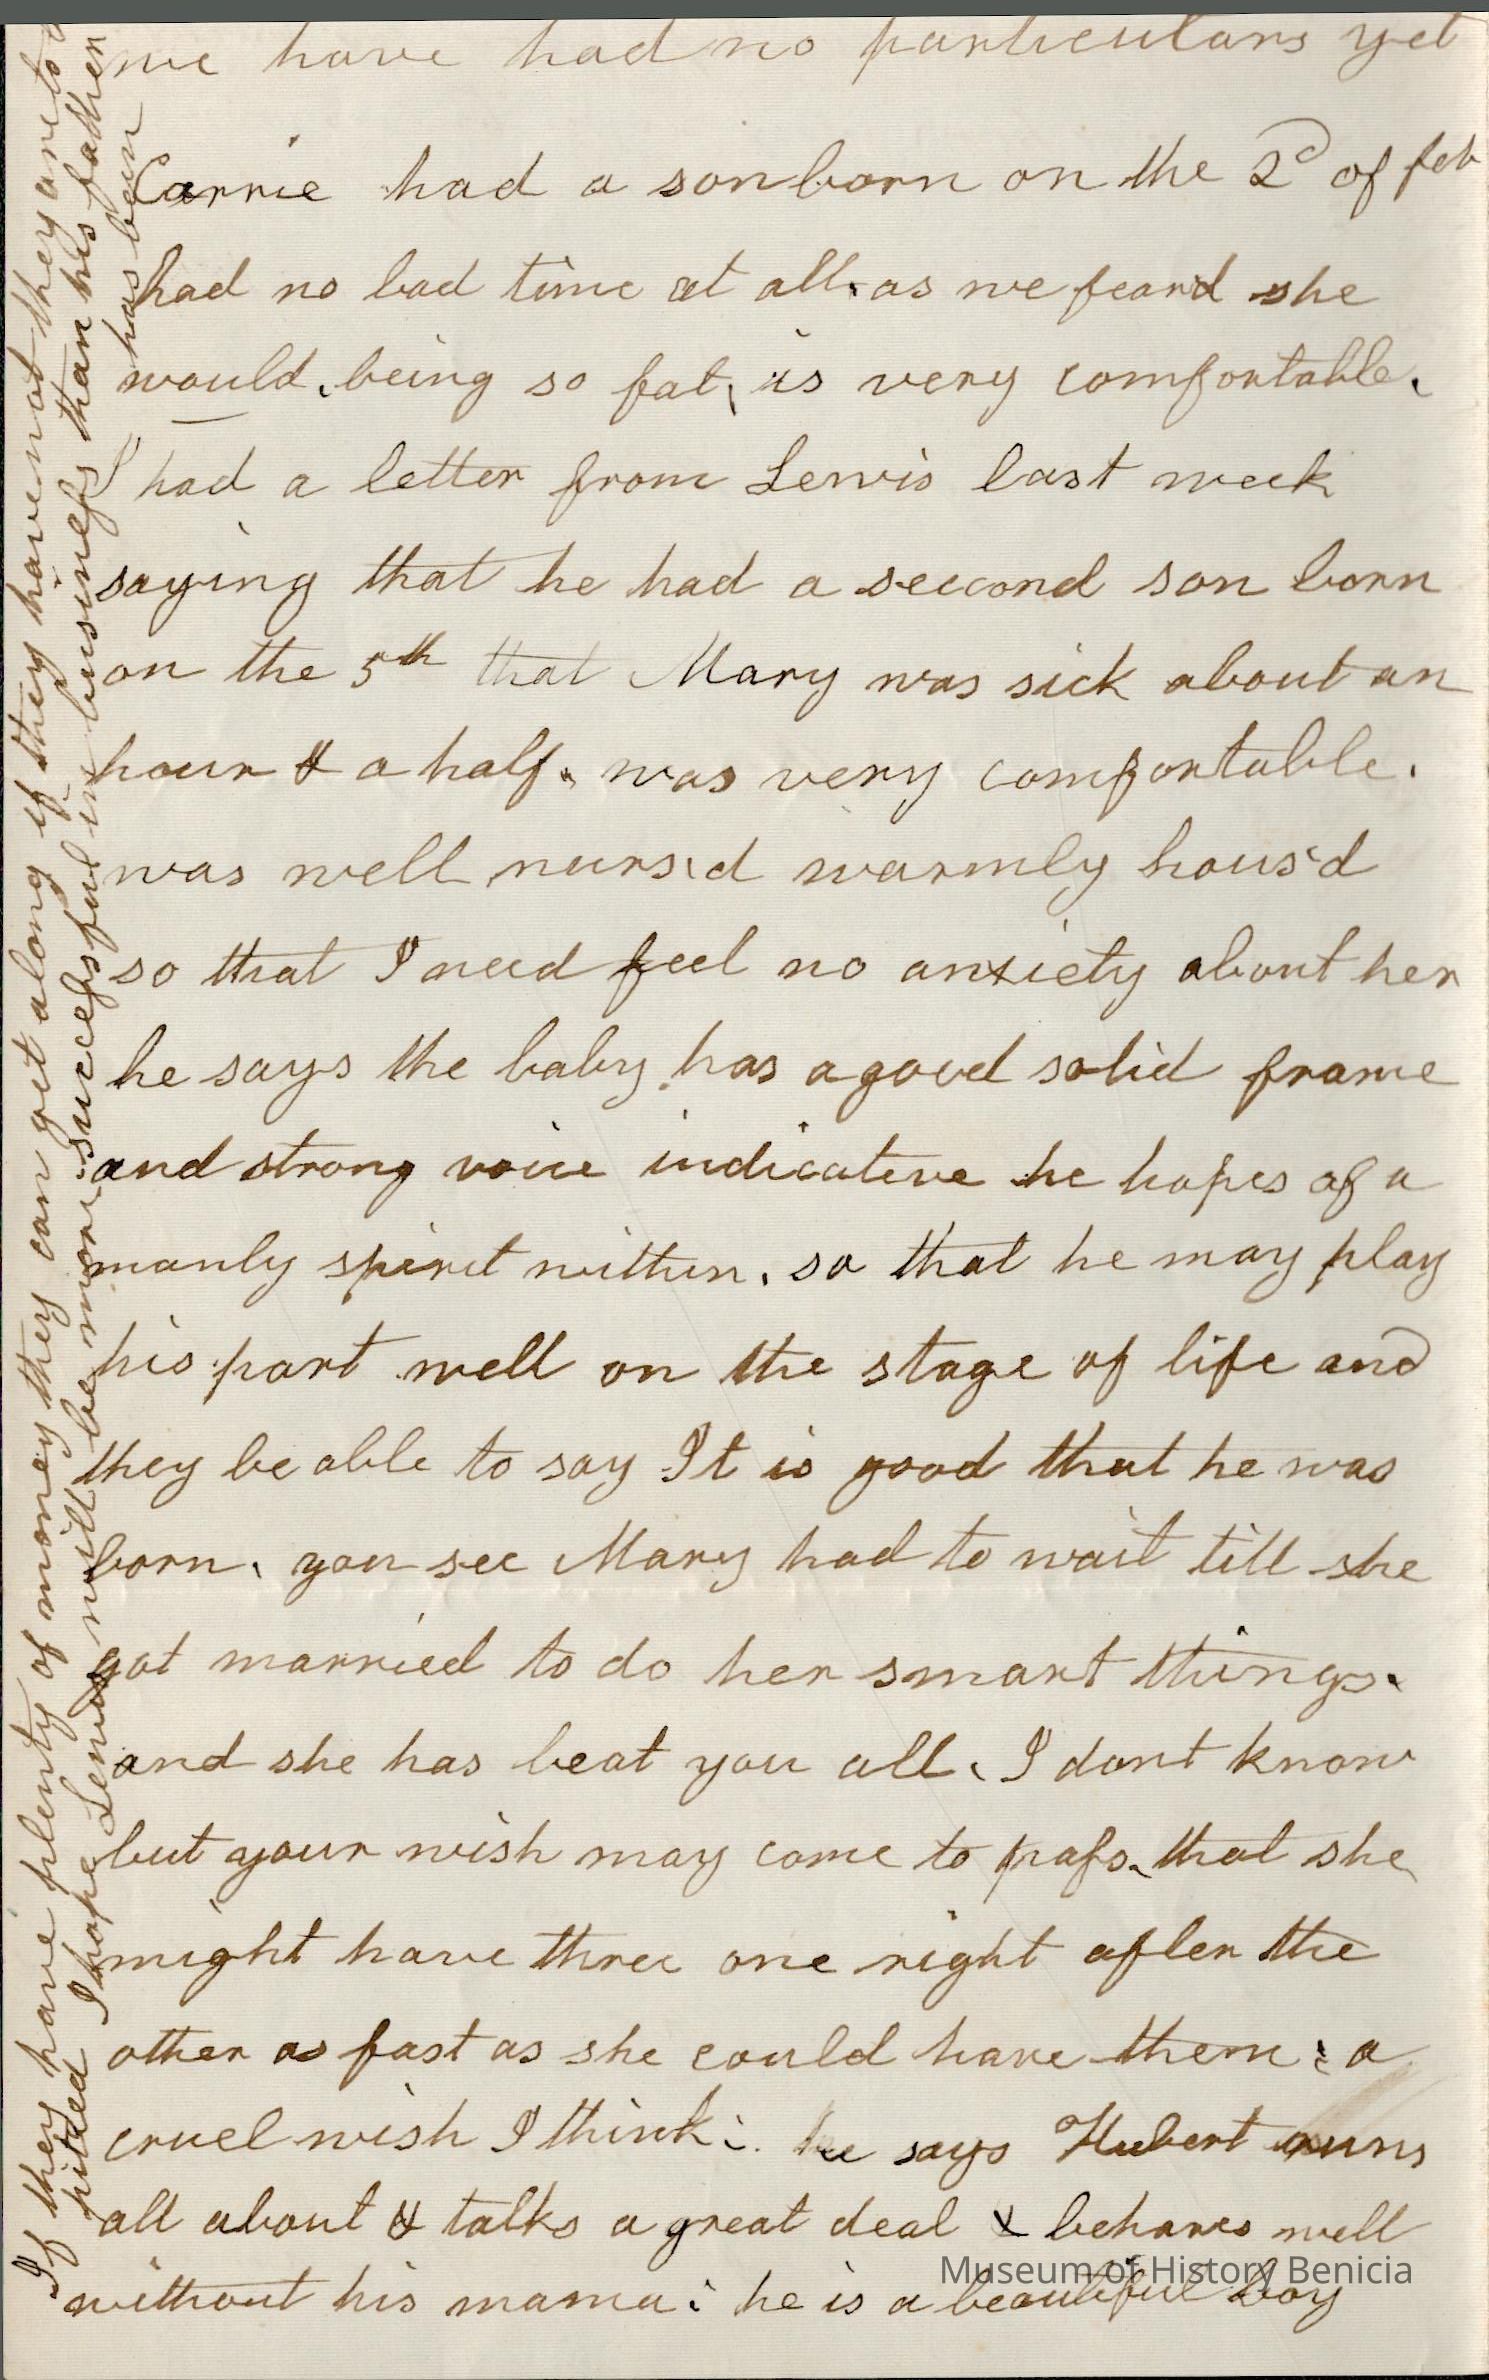 we have had no particulars yet
Carrie had a son born on the 2d of feb
had no bad time at all. as we feard she
would. being so fat, is very comfortable.
I had a letter from Lewis last week
saying that he had a seccond son born
on the 5th that Mary was sick about an
hour & a half. was very comfortable.
was well nurs'd warmly hous'd
so that I need feel no anxiety about her
he says the baby has a good solid frame
and strong voice indicative he hopes of a
manly spirit within. so that he may play
his part well on the stage of life and
they be able to say It is good that he was
born. you see Mary had to wait till she
got married to do her smart things.
and she has beat you all. I dont know
but your wish may come to pass. that she
might have three one right after the
other as fast as she could have them: a
cruel wish I think: he says Hubert runs
all about & talks a great deal & behaves well
without his mama: he is a beautiful boy
If they have plenty of money they can get along if they have not they are to
pitied I hope Lewis will be more successful in business than his father
has been
Museum of History Benicia